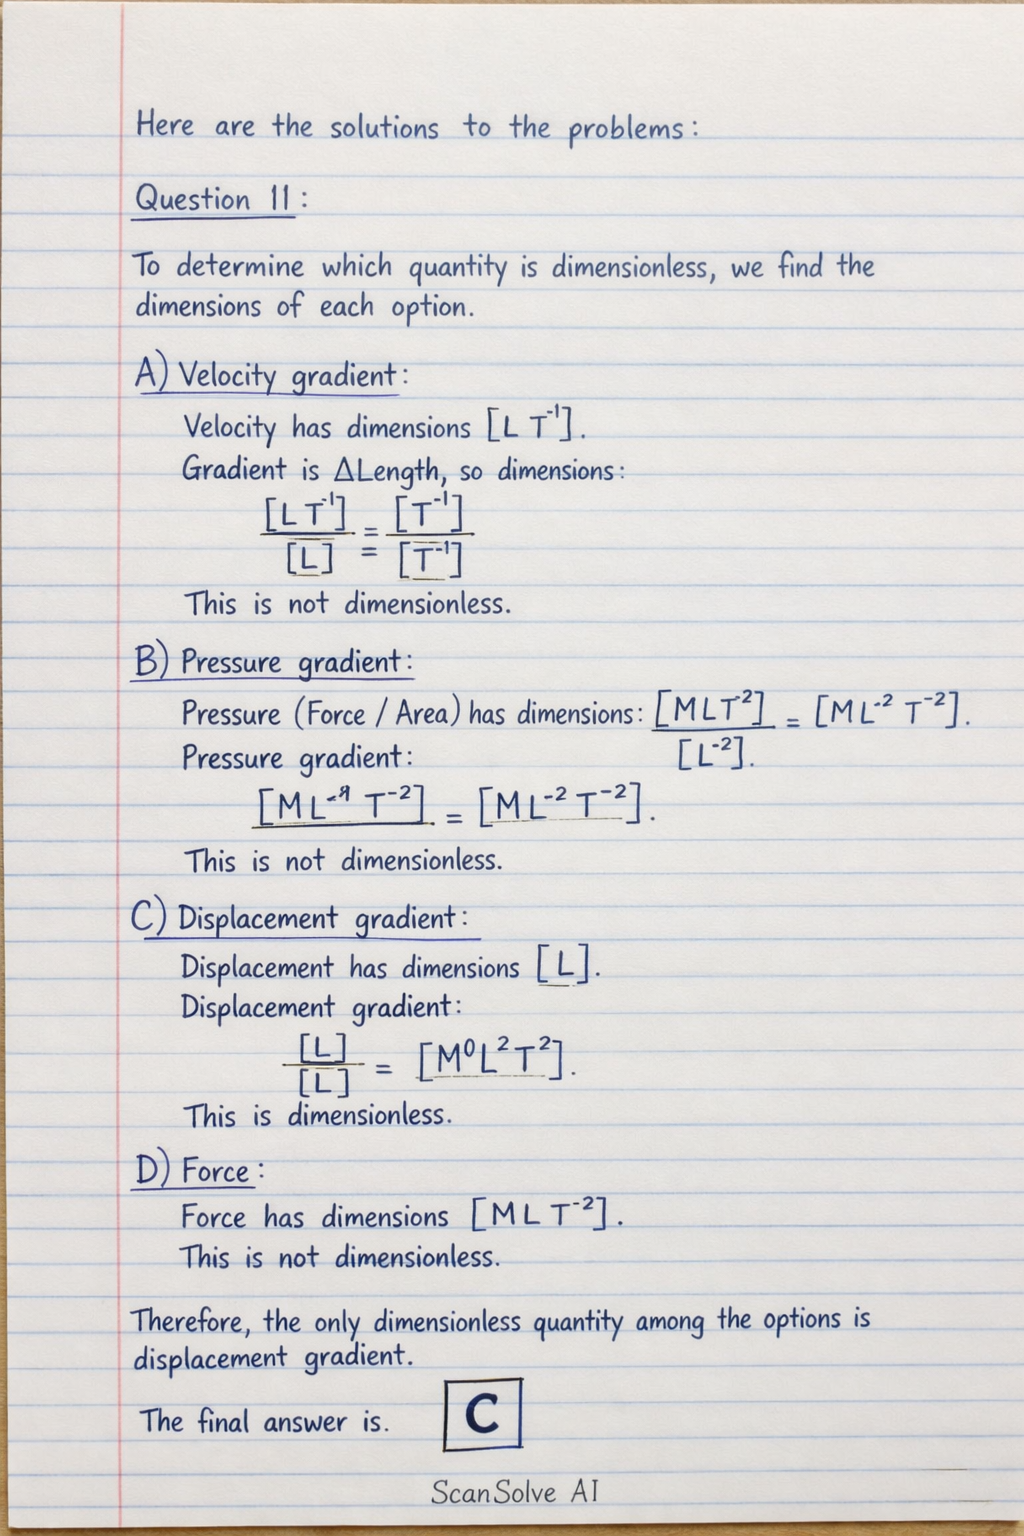 Here are the solutions to the problems:
Question 11:
To determine which quantity is dimensionless, we find the
dimensions of each option.
A) Velocity gradient:
Velocity has dimensions [L T⁻¹].
Gradient is ΔLength, so dimensions:
[L T⁻¹] = [T⁻¹]
[L] = [T⁻¹]
This is not dimensionless.
B) Pressure gradient:
Pressure (Force / Area) has dimensions: [MLT⁻²] = [M L⁻² T⁻²].
[L⁻²].
Pressure gradient:
[M L T⁻²] = [M L⁻² T⁻²].
This is not dimensionless.
C) Displacement gradient:
Displacement has dimensions [L].
Displacement gradient:
[L]
[L] = [M⁰L²T²].
This is dimensionless.
D) Force:
Force has dimensions [M L T⁻²].
This is not dimensionless.
Therefore, the only dimensionless quantity among the options is
displacement gradient.
The final answer is. C
ScanSolve AI